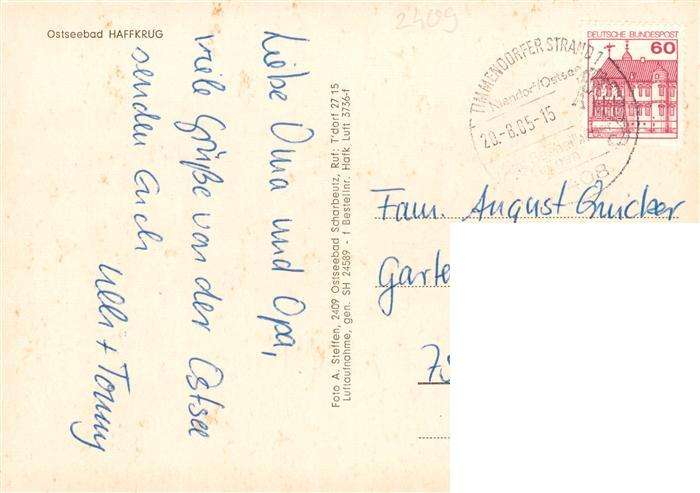 Ostseebad HAFFKRUG
2409
Liebe Oma und Opa,
viele Grüße von der Ostsee
senden Euch
Ulli + Tommy
Foto A. Steffen, 2409 Ostseebad Scharbeutz, Ruf: T'dorf 27 15
Luftaufnahme, gen. SH 24589 - f Bestellnr. Hafk Luft 3736-f
TIMMENDORFER STRAND 1
Niendorf/Ostsee
20.-8.05-15
DEUTSCHE BUNDESPOST
60
Fam. August Quicker
Garte